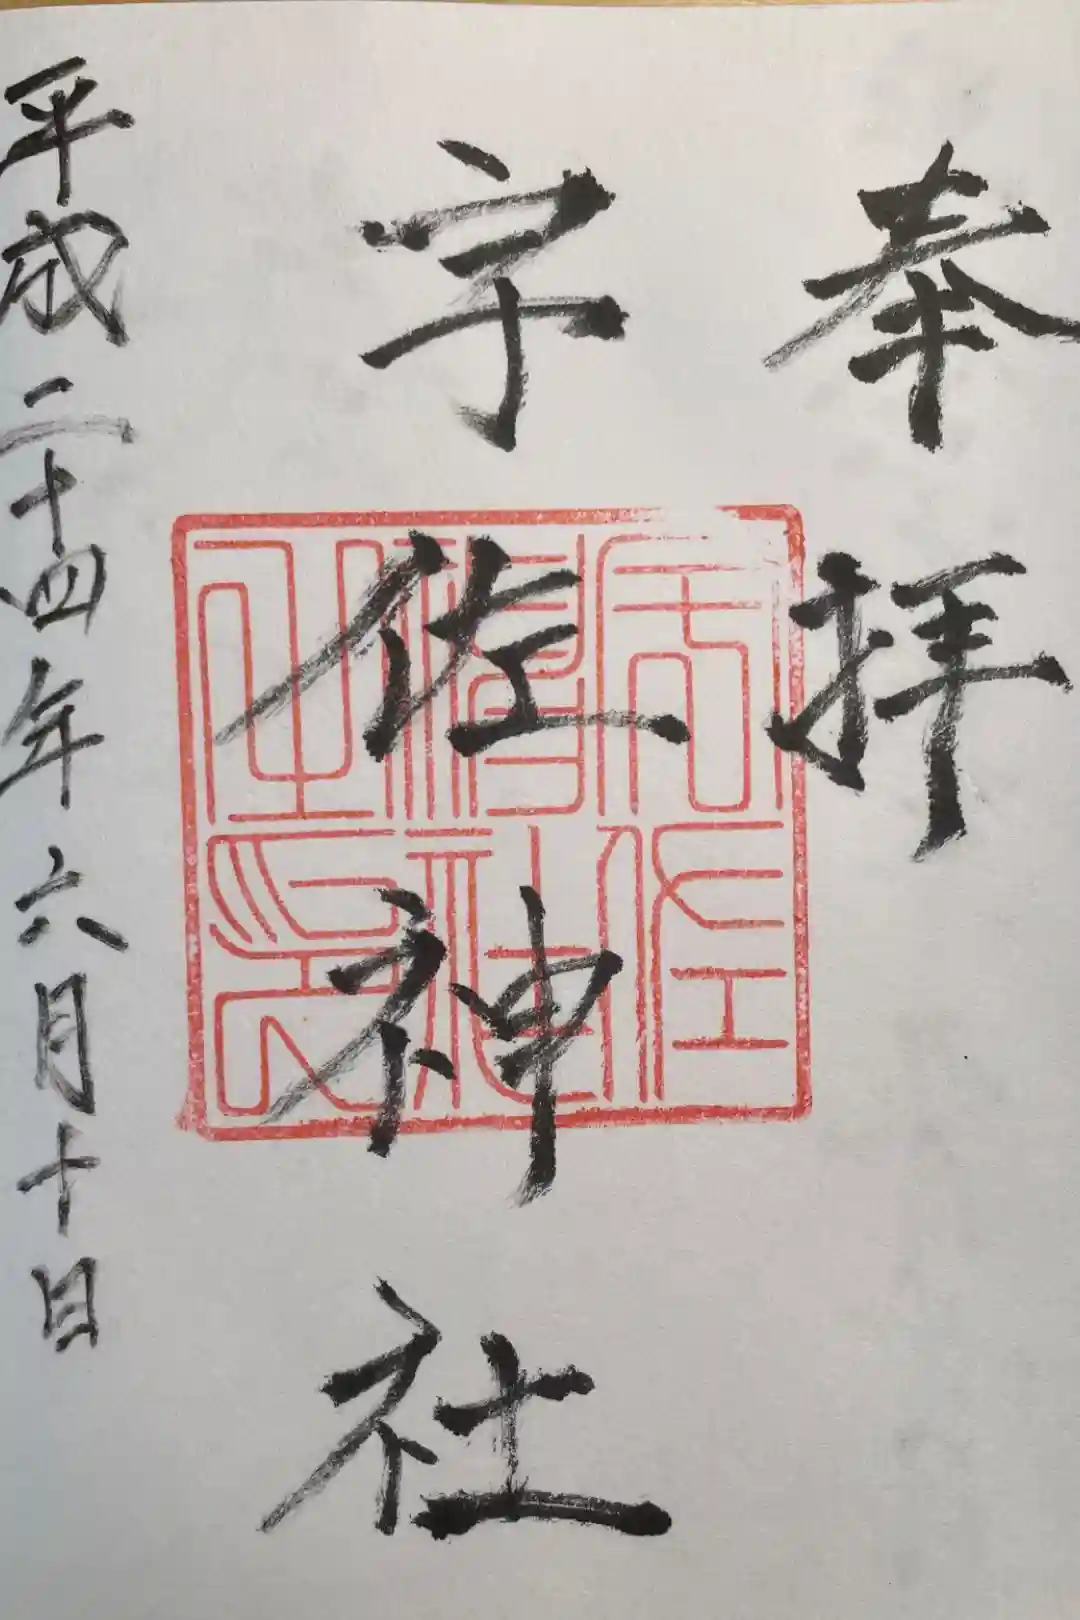 奉拝
宇佐神社
平成二十四年六月十日
宇佐
神社
之印